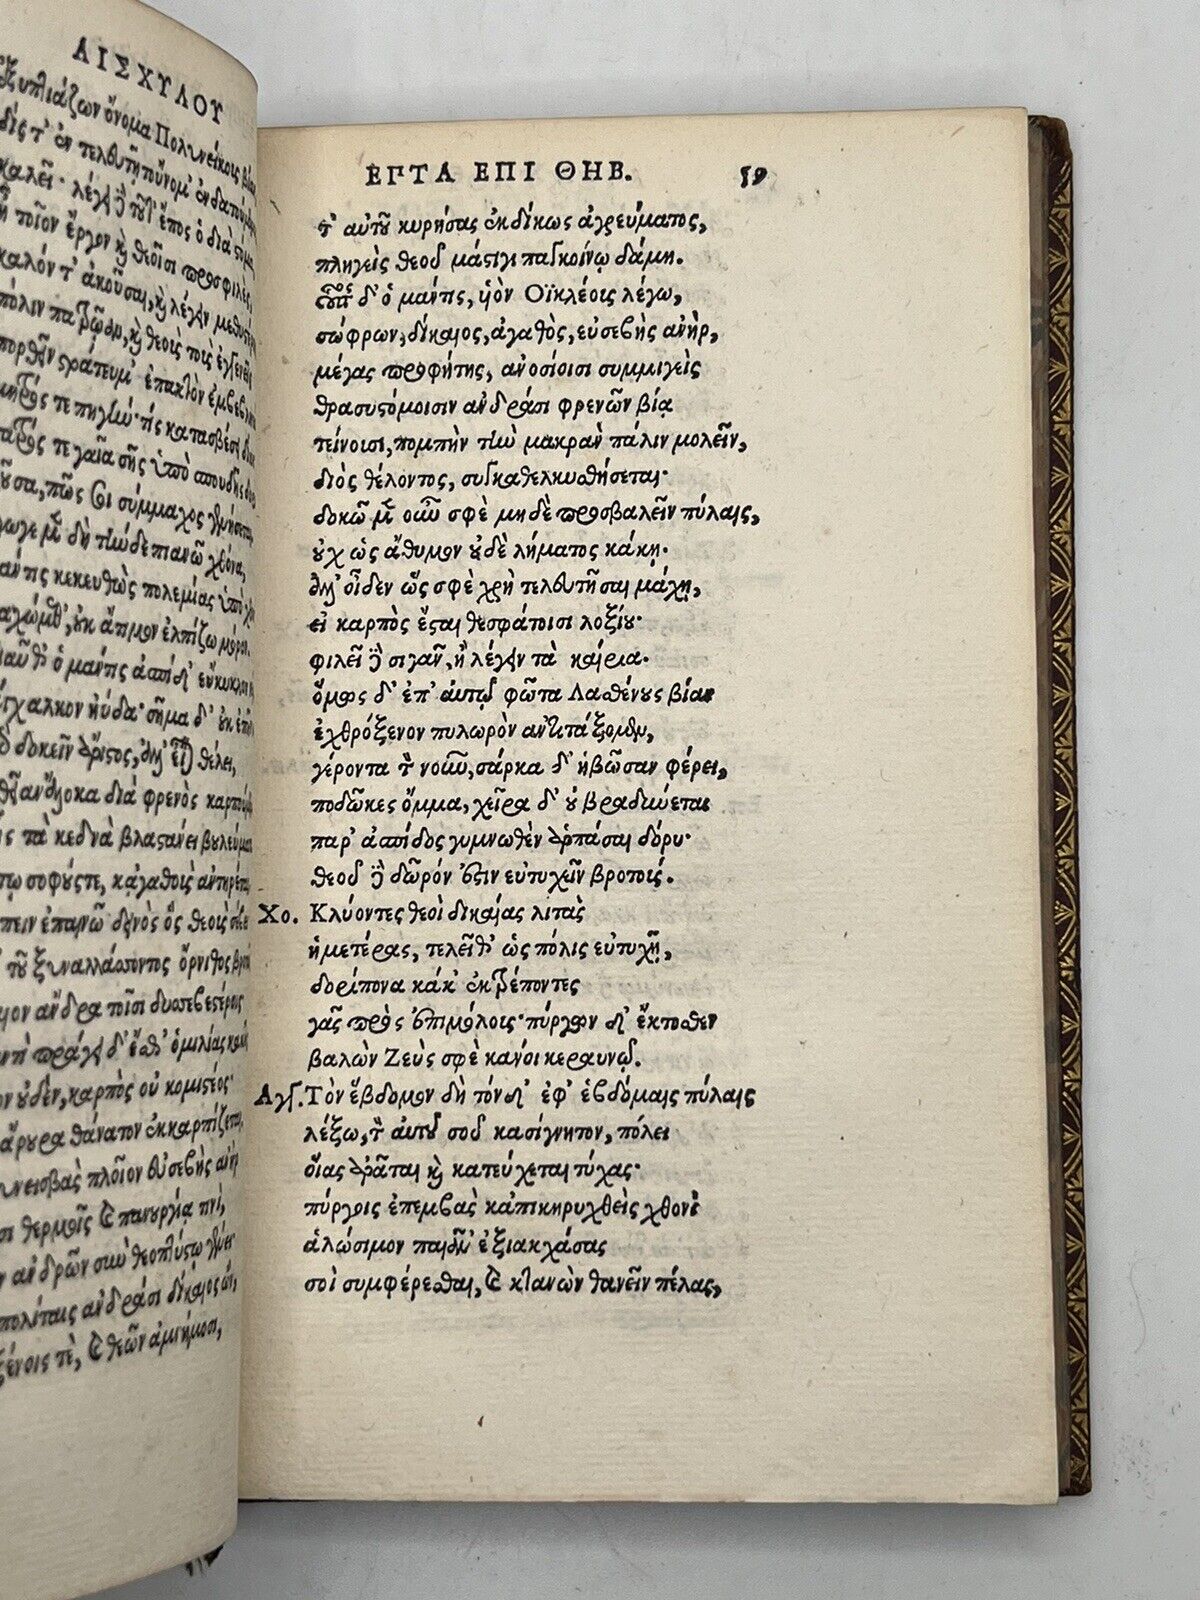 ΑΙΣΧΥΛΟΥ
ἐξυπτιάζων ὄνομα Πολυνείκοις βίαν
δίς τ' ἐν τελευτῇ τοὔνομ'
καλεῖ· λέγει δὲ τοῦτ' ἔπος διὰ
ἦ τοῖον ἔργον καὶ θεοῖσι προσφιλὲς,
καλόν τ' ἀκοῦσαι, καὶ λέγειν
πόλιν πατρῴαν, καὶ θεοὺς τοὺς ἐγγενεῖς
πορθεῖν στράτευμ' ἐπακτὸν
μητρός τε πηγὴν τίς κατασβέσει
τε γαῖα σῆς ὑπὸ σπουδῆς
πῶς σοι σύμμαχος γενήσεται
ἔγωγε μὲν δὴ τήνδε πιανῶ χθόνα,
μάντις κεκευθὼς πολεμίας ὑπὸ
μαχώμεθ', οὐκ ἄτιμον ἐλπίζω μόρον.
τοιαῦθ' ὁ μάντις ἀσπίδ' εὔκυκλον
πάγχαλκον ηὔδα· σῆμα δ' οὐκ
δοκεῖν ἄριστος, ἀλλ' εἶναι θέλει,
βαθεῖαν ἄλοκα διὰ φρενὸς
τὰ κεδνὰ βλαστάνει βουλεύματα
σοφούς τε, κἀγαθοὺς ἀντηρέτας
πέμπειν ἐπαινῶ δεινὸς ὃς θεοὺς σέβει
τοῦ ξυναλλάσσοντος ὄρνιθος
ἄνδρα τοῖσι δυσσεβεστέροις
παντὶ πράγει δ' ἔσθ' ὁμιλίας κακῆς
οὐδὲν, καρπὸς οὐ κομιστέος·
ἄρουρα θάνατον ἐκκαρπίζεται
πλοῖον εὐσεβὴς ἀνὴρ
θερμοῖς καὶ πανουργίᾳ τινὶ,
ἀνδρῶν σὺν θεοπτύστῳ γένει·
πολίταις ἀνδράσι δίκαιος ὢν,
ἐχθροξένοις τὲ, καὶ θεῶν ἀμνήμοσι,
ΕΠΤΑ ΕΠΙ ΘΗΒ. 59
τ' αὐτοῦ κυρήσας ἐκδίκως ἀγρεύματος,
πληγεὶς θεοῦ μάστιγι παγκοίνῳ δάμη.
οὕτως δ' ὁ μάντις, υἱὸν Οἰκλέοις λέγω,
σώφρων, δίκαιος, ἀγαθὸς, εὐσεβὴς ἀνὴρ,
μέγας προφήτης, ἀνοσίοισι συμμιγεὶς
θρασυστόμοισιν ἀνδράσι φρενῶν βίᾳ
τείνουσι, πομπὴν τὴν μακρὰν πάλιν μολεῖν,
διὸς θέλοντος, συγκαθελκυσθήσεται·
δοκῶ μὲν οὖν σφὲ μηδὲ προσβαλεῖν πύλαις,
οὐχ ὡς ἄθυμον οὐδὲ λήματος κάκῃ·
ἀλλ' οἶδεν ὥς σφὲ χρὴ τελευτῆσαι μάχῃ,
εἰ καρπὸς ἔσται θεσφάτοισι λοξίου·
φιλεῖ δὲ σιγᾶν, ἢ λέγειν τὰ καίρια·
ὅμως δ' ἐπ' αὐτῷ φῶτα Λασθένους βίαν
ἐχθρόξενον πυλωρὸν ἀντιτάξομεν,
γέροντα τὸν νοῦν, σάρκα δ' ἡβῶσαν φέρει,
ποδῶκες ὄμμα, χεῖρα δ' οὐ βραδύνεται
παρ' ἀσπίδος γυμνωθὲν ἁρπάσαι δόρυ·
θεοῦ δὲ δῶρόν ἐστιν εὐτυχεῖν βροτοίς.
Χο. Κλύοντες θεοὶ δικαίας λιτὰς
ἡμετέρας, τελεῖθ' ὡς πόλις εὐτυχῇ,
δορίπονα κάκ' ἐκτρέποντες
γᾶς πρὸς ἐπιμόλοις· πύργων δ' ἔκτοθεν
βαλὼν Ζεύς σφὲ κάνοι κεραυνῷ.
Αγγ. Τὸν ἕβδομον δὴ τόνδ' ἐφ' ἑβδόμαις πύλαις
λέξω, τὸν αὐτοῦ σοῦ κασίγνητον, πόλει
οἵας ἀρᾶται καὶ κατεύχεται τύχας·
πύργοις ἐπεμβὰς κἀπικηρυχθεὶς χθονὶ
ἁλώσιμον παιᾶν' ἐξιακχάσας
σοὶ συμφέρεσθαι, καὶ κτανὼν θανεῖν πέλας,